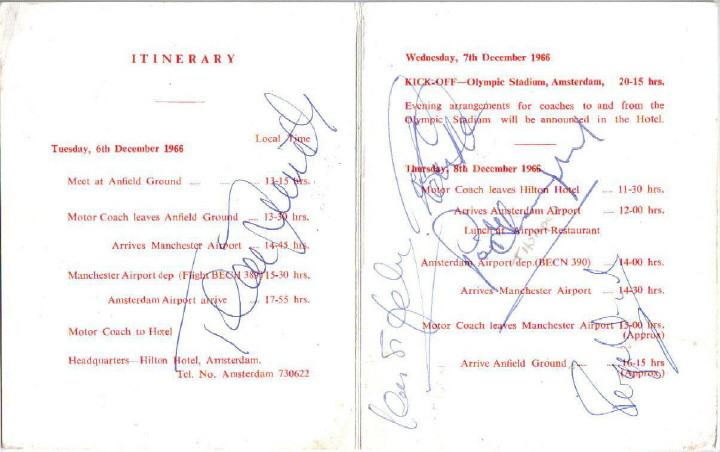 ITINERARY
Local Time
Tuesday, 6th December 1966
Meet at Anfield Ground ... 13-15 hrs.
Motor Coach leaves Anfield Ground ... 13-30 hrs.
Arrives Manchester Airport ... 14-45 hrs.
Manchester Airport dep (Flight BECN 389) 15-30 hrs.
Amsterdam Airport arrive ... 17-55 hrs.
Motor Coach to Hotel
Headquarters—Hilton Hotel, Amsterdam.
Tel. No. Amsterdam 730622
Wednesday, 7th December 1966
KICK-OFF—Olympic Stadium, Amsterdam, 20-15 hrs.
Evening arrangements for coaches to and from the
Olympic Stadium will be announced in the Hotel.
Thursday, 8th December 1966
Motor Coach leaves Hilton Hotel ... 11-30 hrs.
Arrives Amsterdam Airport ... 12-00 hrs.
Lunch at Airport Restaurant
Amsterdam Airport dep. (BECN 390) ... 14-00 hrs.
Arrives Manchester Airport ... 14-30 hrs.
Motor Coach leaves Manchester Airport 15-00 hrs.
(Approx)
Arrive Anfield Ground ... 16-15 hrs
(Approx)